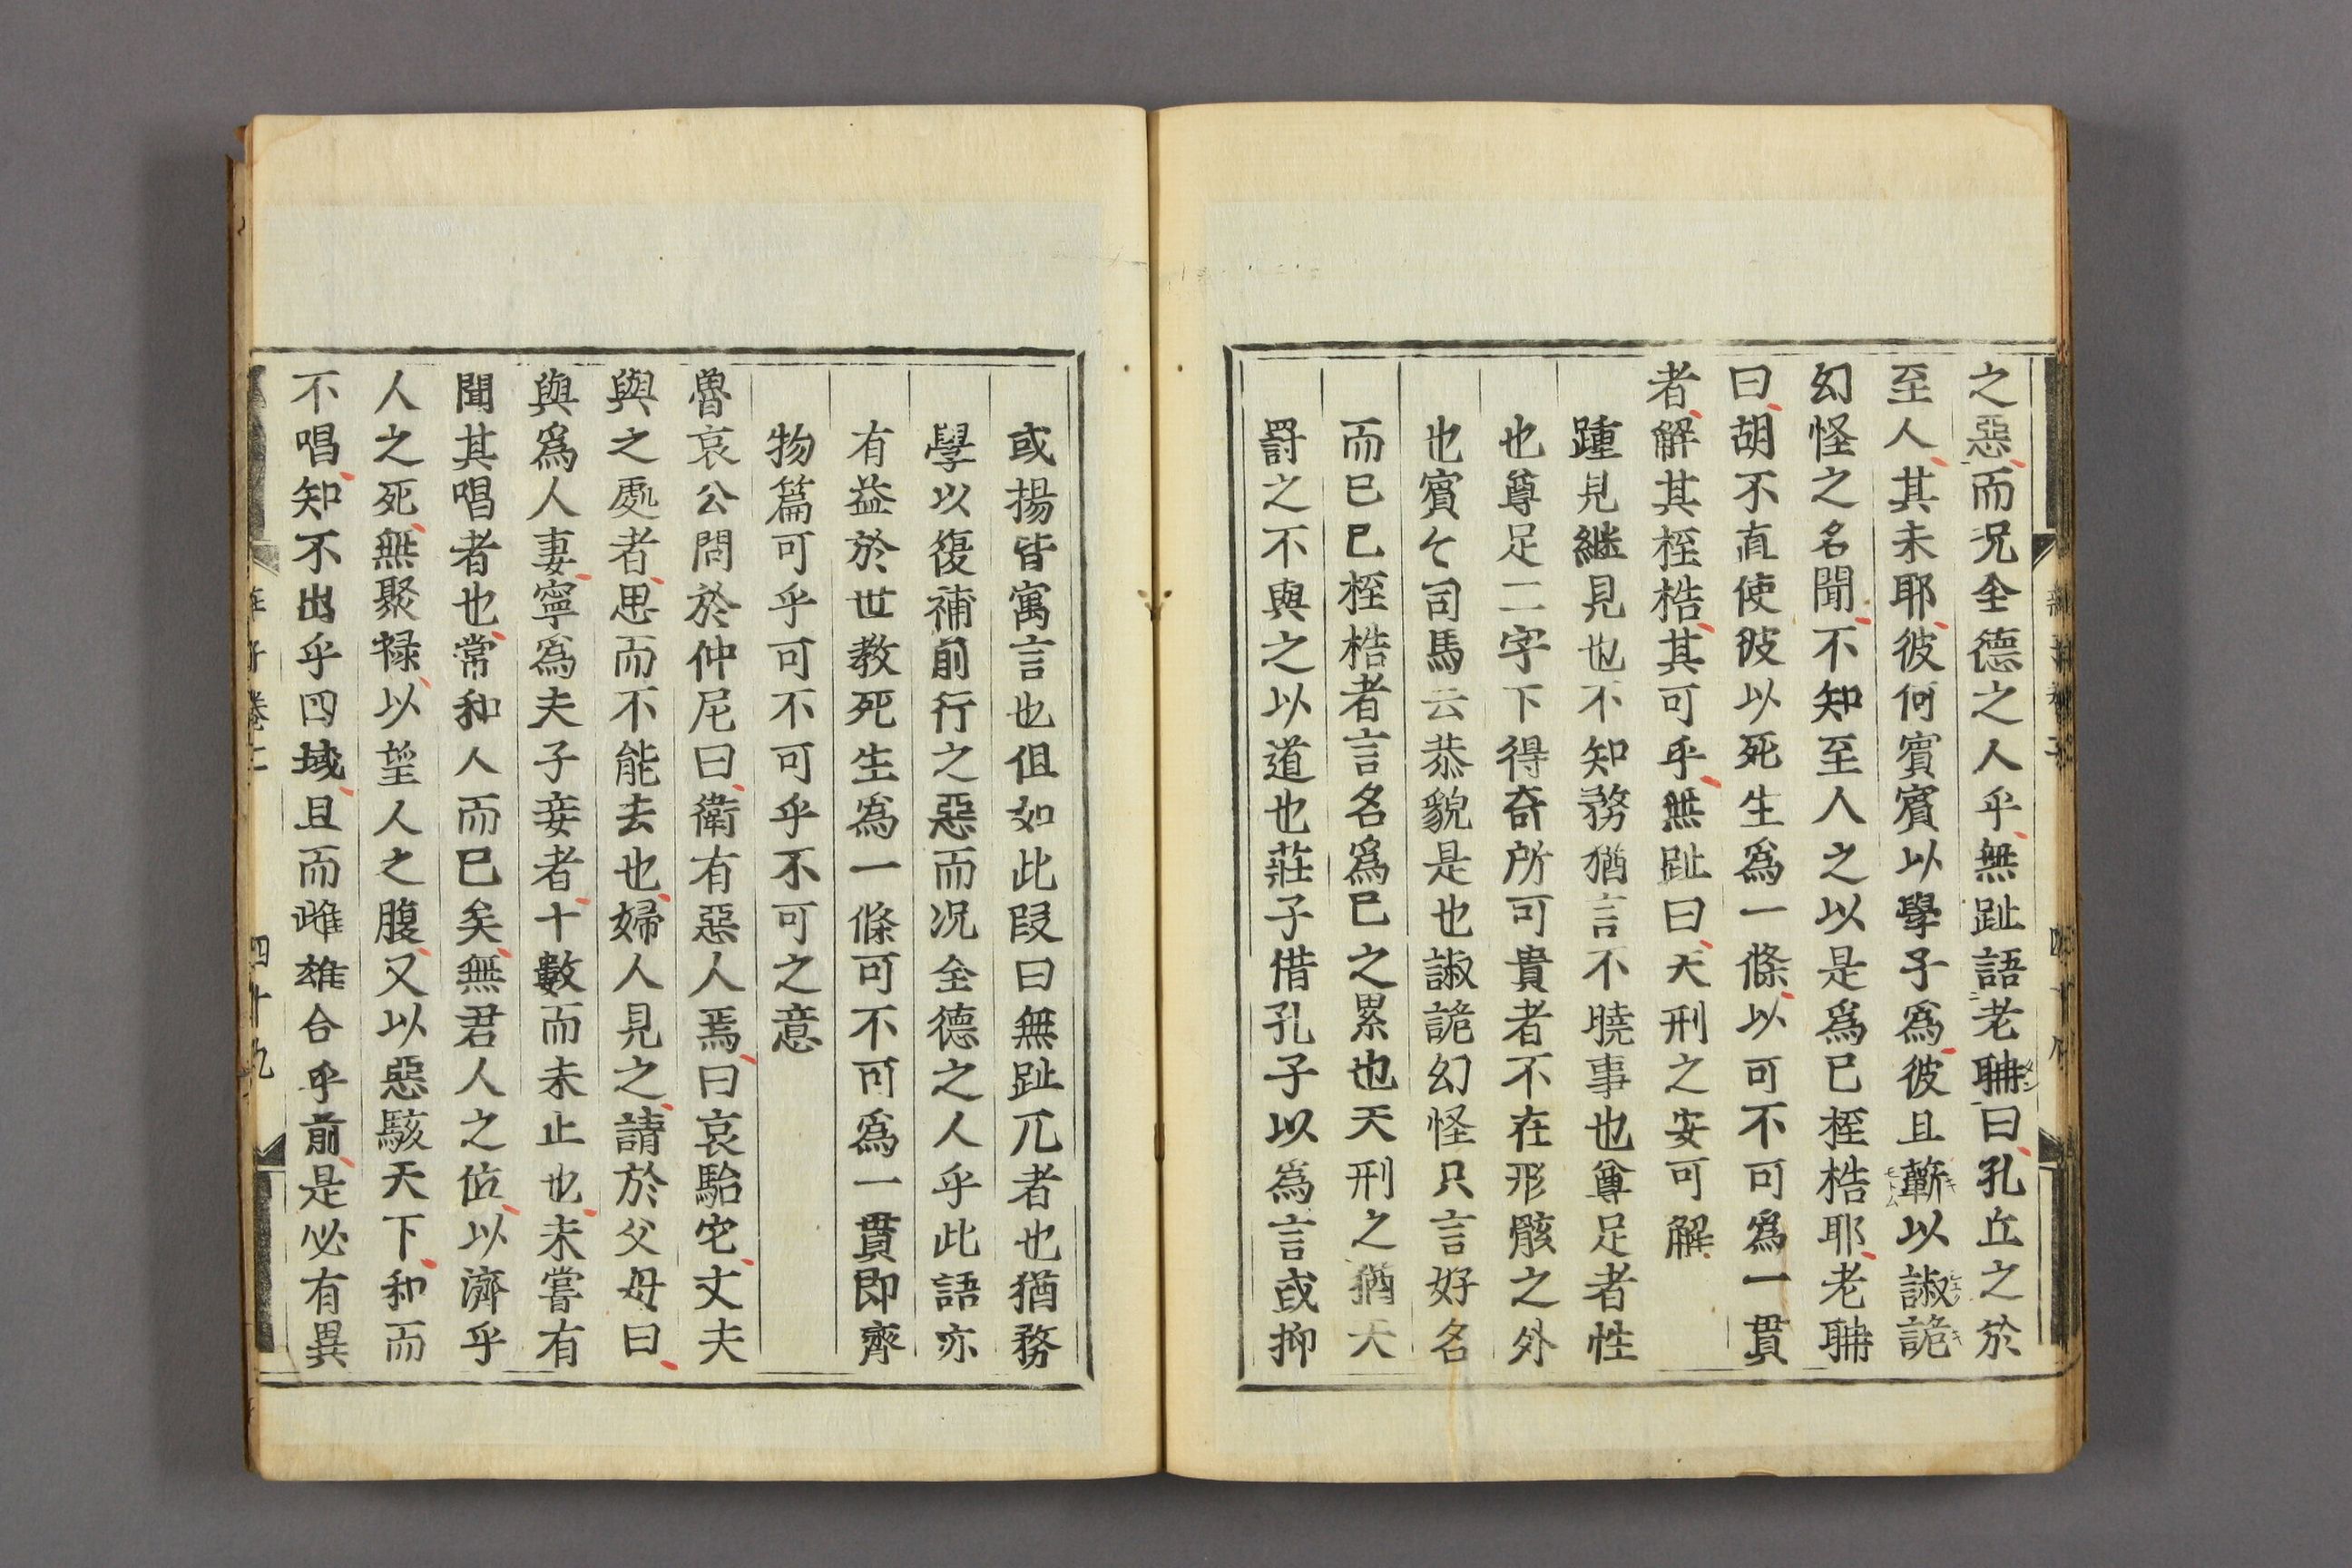 之惡而况全德之人乎無趾語老聃曰孔丘之於
至人其未耶彼何賓賓以學子爲彼且蘄以諔詭
幻怪之名聞不知至人之以是爲已桎梏耶老聃
曰胡不直使彼以死生爲一條以可不可爲一貫
者解其桎梏其可乎無趾曰天刑之安可解
踵見継見也不知務猶言不曉事也尊足者性
也尊足二字下得奇所可貴者不在形骸之外
也賓々司馬云恭貌是也諔詭幻怪只言好名
而已已桎梏者言名爲已之累也天刑之猶天
罸之不與之以道也莊子借孔子以爲言或抑
或揚皆寓言也但如此段曰無趾兀者也猶務
學以復補前行之惡而况全德之人乎此語亦
有益於世教死生爲一條可不可爲一貫即齊
物篇可乎可不可乎不可之意
魯哀公問於仲尼曰衛有惡人焉曰哀駘它丈夫
與之處者思而不能去也婦人見之請於父母曰
與爲人妻寧爲夫子妾者十數而未止也未嘗有
聞其唱者也常和人而已矣無君人之位以濟乎
人之死無聚禄以望人之腹又以惡駭天下和而
不唱知不出乎四域且而雌雄合乎前是必有異
四十九